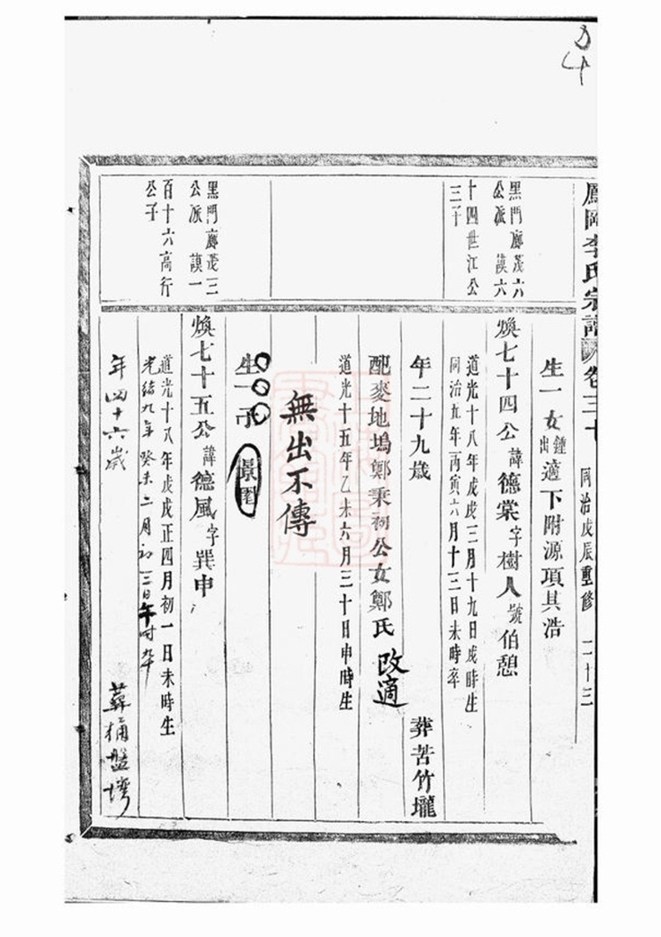 鳳岡李氏宗譜 卷三十 同治戊辰重修 二十三
黑門廊茂六
公派 謨六
十四世江公
三子
黑門廊茂三
公派 謨一
百十六高行
公子
生一女 鍾出 適下附源項其浩
煥七十四公 諱德棠 字樹人 號伯憩
道光十八年戊戌三月十九日戌時生
同治五年丙寅六月十三日未時卒
年二十九歲 葬苦竹壠
配麥地塢鄭秉祠公女鄭氏 改適
道光十五年乙未六月三十日申時生
無出不傳
生一子 景
煥七十五公 諱德風 字巽申
道光十八年戊戌正四月初一日未時生
光緒九年癸未二月初三日午時卒
年四十六歲 葬桶盤塆